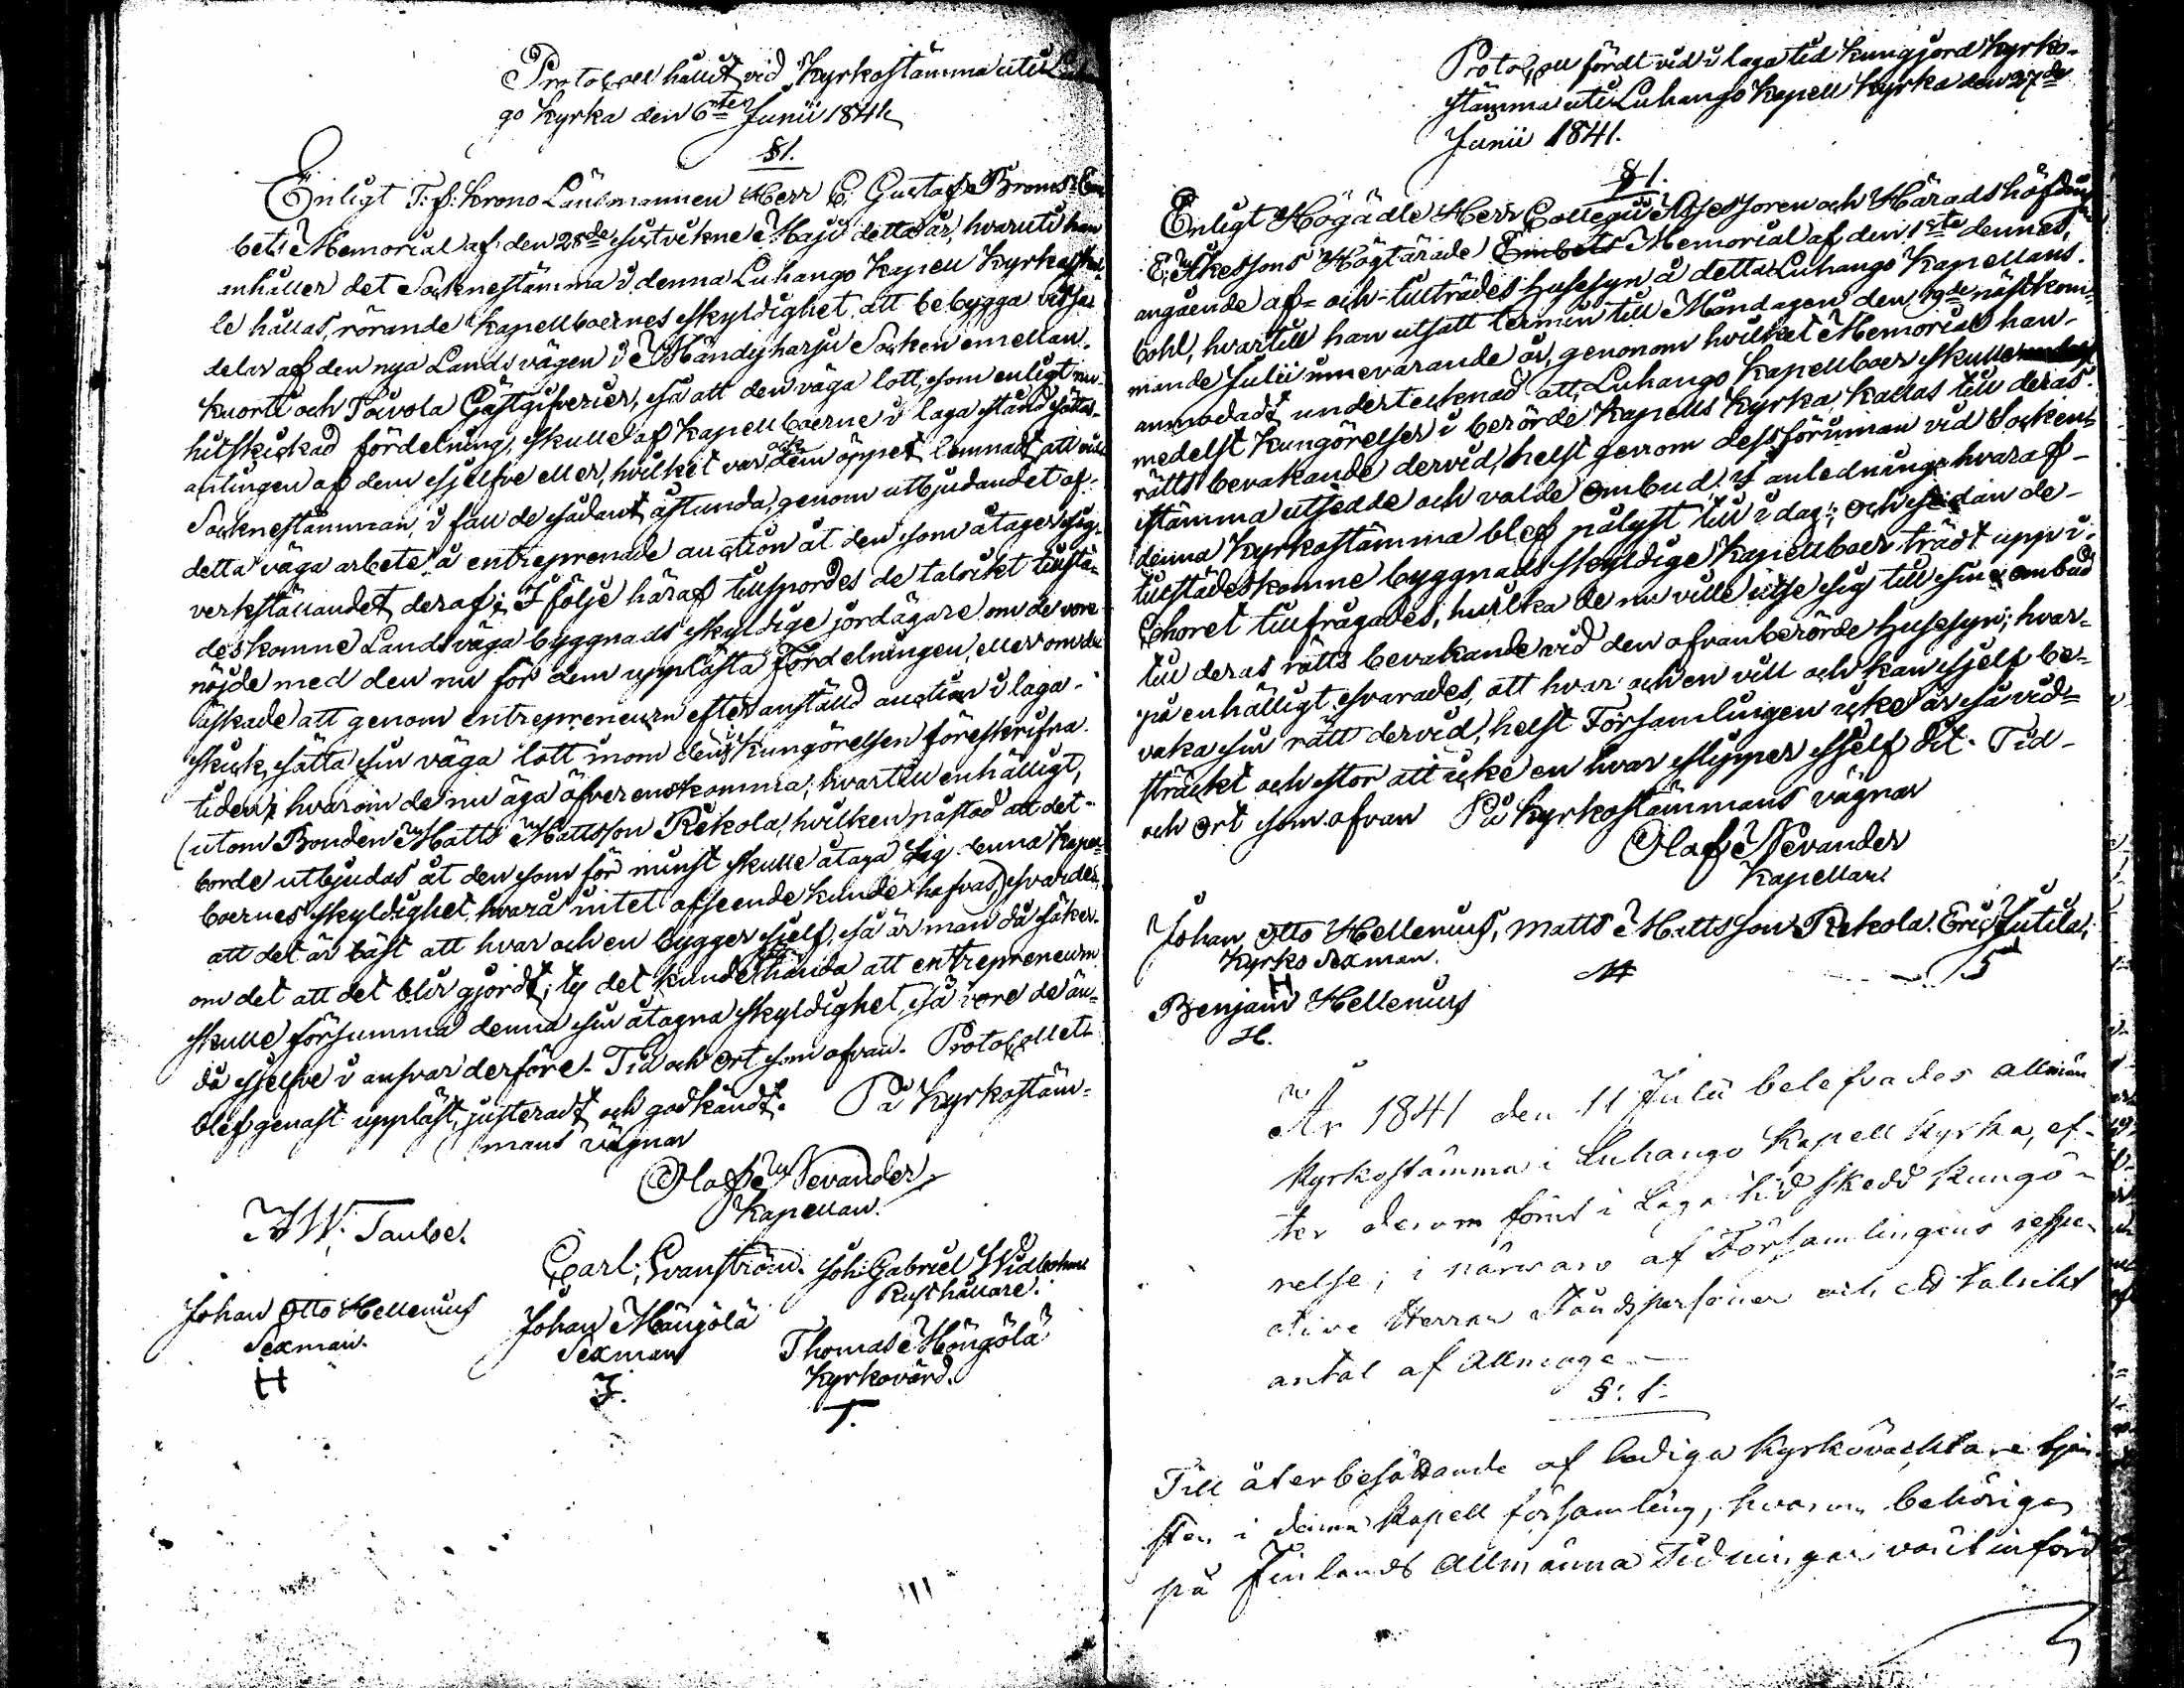 Protokoll hållit vid Kyrkostämma uti Luhan
go Kyrka den 6te Junii 1841
§1.
Enligt T. f. Krono Länsmannen Herr C. Gustaf Broms Em
bets Memorial af den 28de sistvikne Maji detta år, hvaruti han
anhåller det Socknestämma i denna Luhango Kapell Kyrka skul-
le hållas, rörande Kapellboernes skyldighet att bebygga vissa
delar af den nya Lands vägen i Mändyharju Socken emellan
Kuorti och Toivola Gästgifverier, så att den väga lott, som enligt nu
hitskickad fördelning, skulle af Kapellboerne i laga stånd sättas
antingen af dem sjelfve eller, hvilket var ock dem öppet lemnadt, att vid
Socknestämman, i fall de sådant åstunda, genom utbjudandet af
detta väga arbete å entreprenade auction åt den som åtager sig
verkställandet deraf; I följe häraf tillspordes de talrikt tillstä-
deskomne Landsväga byggnads skyldige jordägare om de vore
nöjde med den nu för dem upplästa Fördelningen, eller om de
äskade att genom entrepreneurn efter anställd auction i laga
skick sätta sin väga lott inom den i Kungörelsen föreskrifna
tiden; hvarom de nu äga öfverenskomma; hvartill enhälligt,
(utom Bonden Matts Mattsson Rekola, hvilken påstod att det
borde utbjudas åt den som för minst skulle åtaga sig denna Kapell-
boernes skyldighet, hvarå intet afseende kunde hafvas) svarades
att det är bäst att hvar och en bygger sjelf, så är man då säker
om det att det blir gjordt; ty det kunde hända att entrepreneurn
skulle försumma denna sin åtagna skyldighet, så vore de än-
då sjelfve i ansvar derföre. Tid och Ort som ofvan. Protokollet
blef genast uppläst, justeradt och godkändt. På Kyrkostäm-
mans vägnar
Olof Nevander
Kapellan.
A W. Taube.
Carl Svanström. Joh: Gabriel Widbohm
Rusthållare.
Johan Otto Hellenius
Sexman.
H
Johan Mängölä
Sexman
J.
Thomas Höngölä
Kyrkovärd.
T.
Protokoll fördt vid i laga tid kungjord Kyrko-
stämma uti Luhango Kapell Kyrka den 27de
Junii 1841.
§1.
Enligt Högädle Herr Collegii Assessoren och Häradshöfding
E: Åkessons Högtärade Embets Memorial af den 1ste dennes,
angående af- och tillträdes Husesyn å detta Luhango Kapellans-
bohl, hvartill han utsatt termin till Måndagen den 19de nästkom-
mande Julii innevarande år, genonom hvilket Memorial han
anmodadt undertecknad att, Luhango Kapellboer skulle
medelst Kungörelser i berörde Kapells Kyrka, kallas till deras
rätts bevakande dervid, helst genom dessförinnan vid Socken-
stämma utsedde och valde Ombud. I anledning hvaraf
denna Kyrkostämma blef pålyst till i dag; och sedan de
tillstädeskomne byggnads skyldige Kapellboer trädt upp i
Choret tillfrågades, hvilka de nu ville utse sig till sine ombud
till deras rätts bevakande vid den ofvanberörde Husesyn; hvar-
på enhälligt svarades, att hvar och en vill och kan sjelf be-
vaka sin rätt dervid, helst Församlingen icke är så vid-
sträckt och stor att icke en hvar slipper sjelf dit. Tid
och Ort som ofvan På Kyrkostämmans vägnar
Olof Nevander
Kapellan.
Johan Otto Hellenius, Matts Mattsson Rekola. Eric Jutila,
Kyrko Sexman.
H
M
Benjam Hellenius
H.
År 1841 den 11 Julii belefvades allmän
Kyrkostämma i Luhango Kapell Kyrka, ef-
ter derom förut i laga tid skedd kungö-
relse, i närvaro af Församlingens respe
ctive Herrar Ståndspersoner och ett talrikt
antal af Allmoge.
§. 1.
Till återbesättande af lediga Kyrkovacktare tjen
sten i denna Kapell församling, hvarom behörigen
på Finlands Allmänna Tidningar varit införd